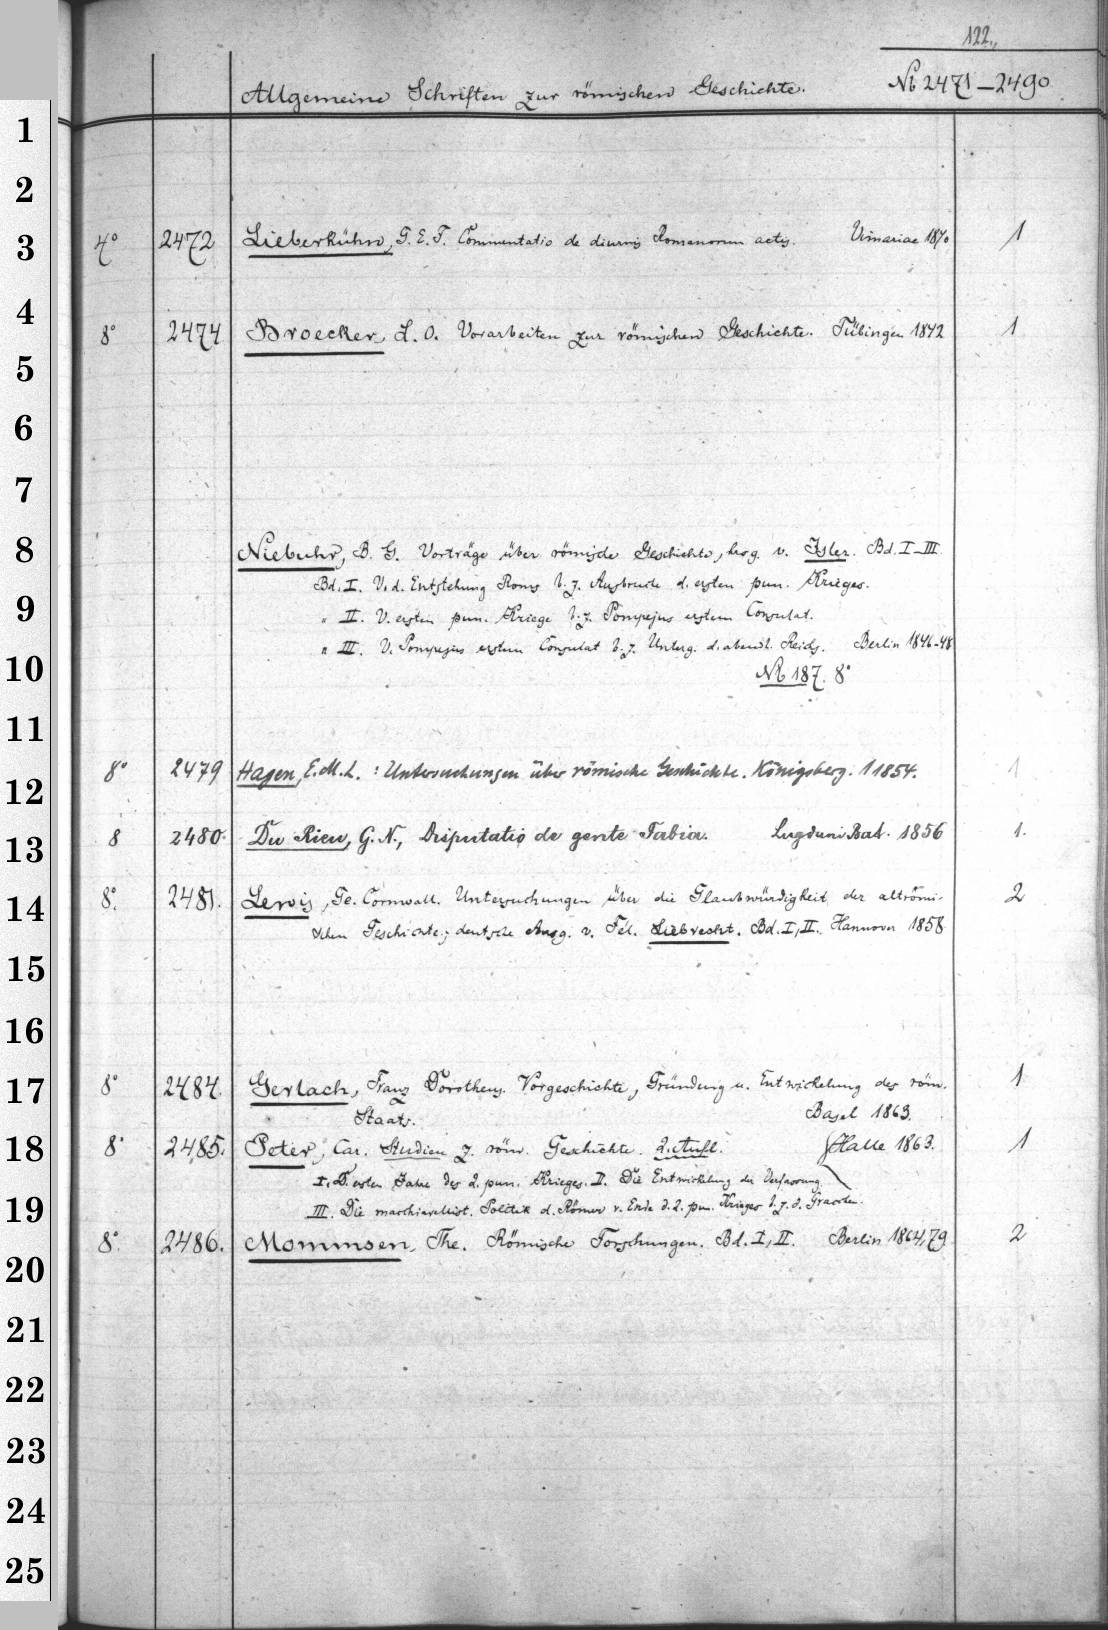 122.
Allgemeine Schriften zur römischen Geschichte. No 2471-2490
1
2
3 4° 2472 Lieberkühn, G. E. F. Commentatio de diurnis Romanorum actis. Vimariae 1840 1
4 8° 2474 Broecker, L. O. Vorarbeiten zur römischen Geschichte. Tübingen 1842 1
5
6
7
8 Niebuhr, B. G. Vorträge über römische Geschichte, hrsg. v. Isler. Bd. I-III
Bd. I. V. d. Entstehung Roms b. z. Ausbruch d. ersten pun. Krieges.
9 " II. V. ersten pun. Kriege b. z. Pompejus erstem Consulat.
" III. V. Pompejus erstem Consulat b. z. Unterg. d. abendl. Reichs. Berlin 1846-48
10 No 187. 8°
11
8° 2479 Hagen, E. M. L. : Untersuchungen über römische Geschichte. Königsberg. 1 1854. 1
12
13 8 2480. Du Rieu, G. N., Disputatio de gente Fabia. Lugduni Bat. 1856 1.
14 8°. 2481. Lewis, Ge. Cornwall. Untersuchungen über die Glaubwürdigkeit der altrömi-
schen Geschichte; deutsche Ausg. v. Fel. Liebrecht. Bd. I, II. Hannover 1858 2
15
16
17 8° 2484. Gerlach, Franz Dorotheus. Vorgeschichte, Gründung u. Entwickelung des röm. 1
Staats. Basel 1863.
18 8° 2485. Peter, Car. Studien z. röm. Geschichte. 2. Aufl. Halle 1863. 1
I. D. ersten Jahre des 2. pun. Krieges. II. Die Entwickelung der Verfassung.
19 III. Die macchiavellist. Politik d. Römer v. Ende d. 2. pun. Krieges b. z. d. Gracchen.
8°. 2486. Mommsen, The. Römische Forschungen. Bd. I, II. Berlin 1864,79 2
20
21
22
23
24
25